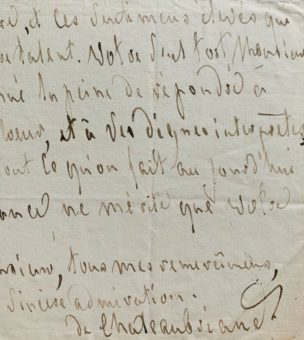 et ces sentimens élevés que
talent. Votre seul tort, Monsieur
la peine de répondre à
et à ses dignes interprètes
tout ce qu'on fait aujourd'hui
ne mérite que votre
tous mes remerciemens,
sincère admiration.
de Chateaubriand